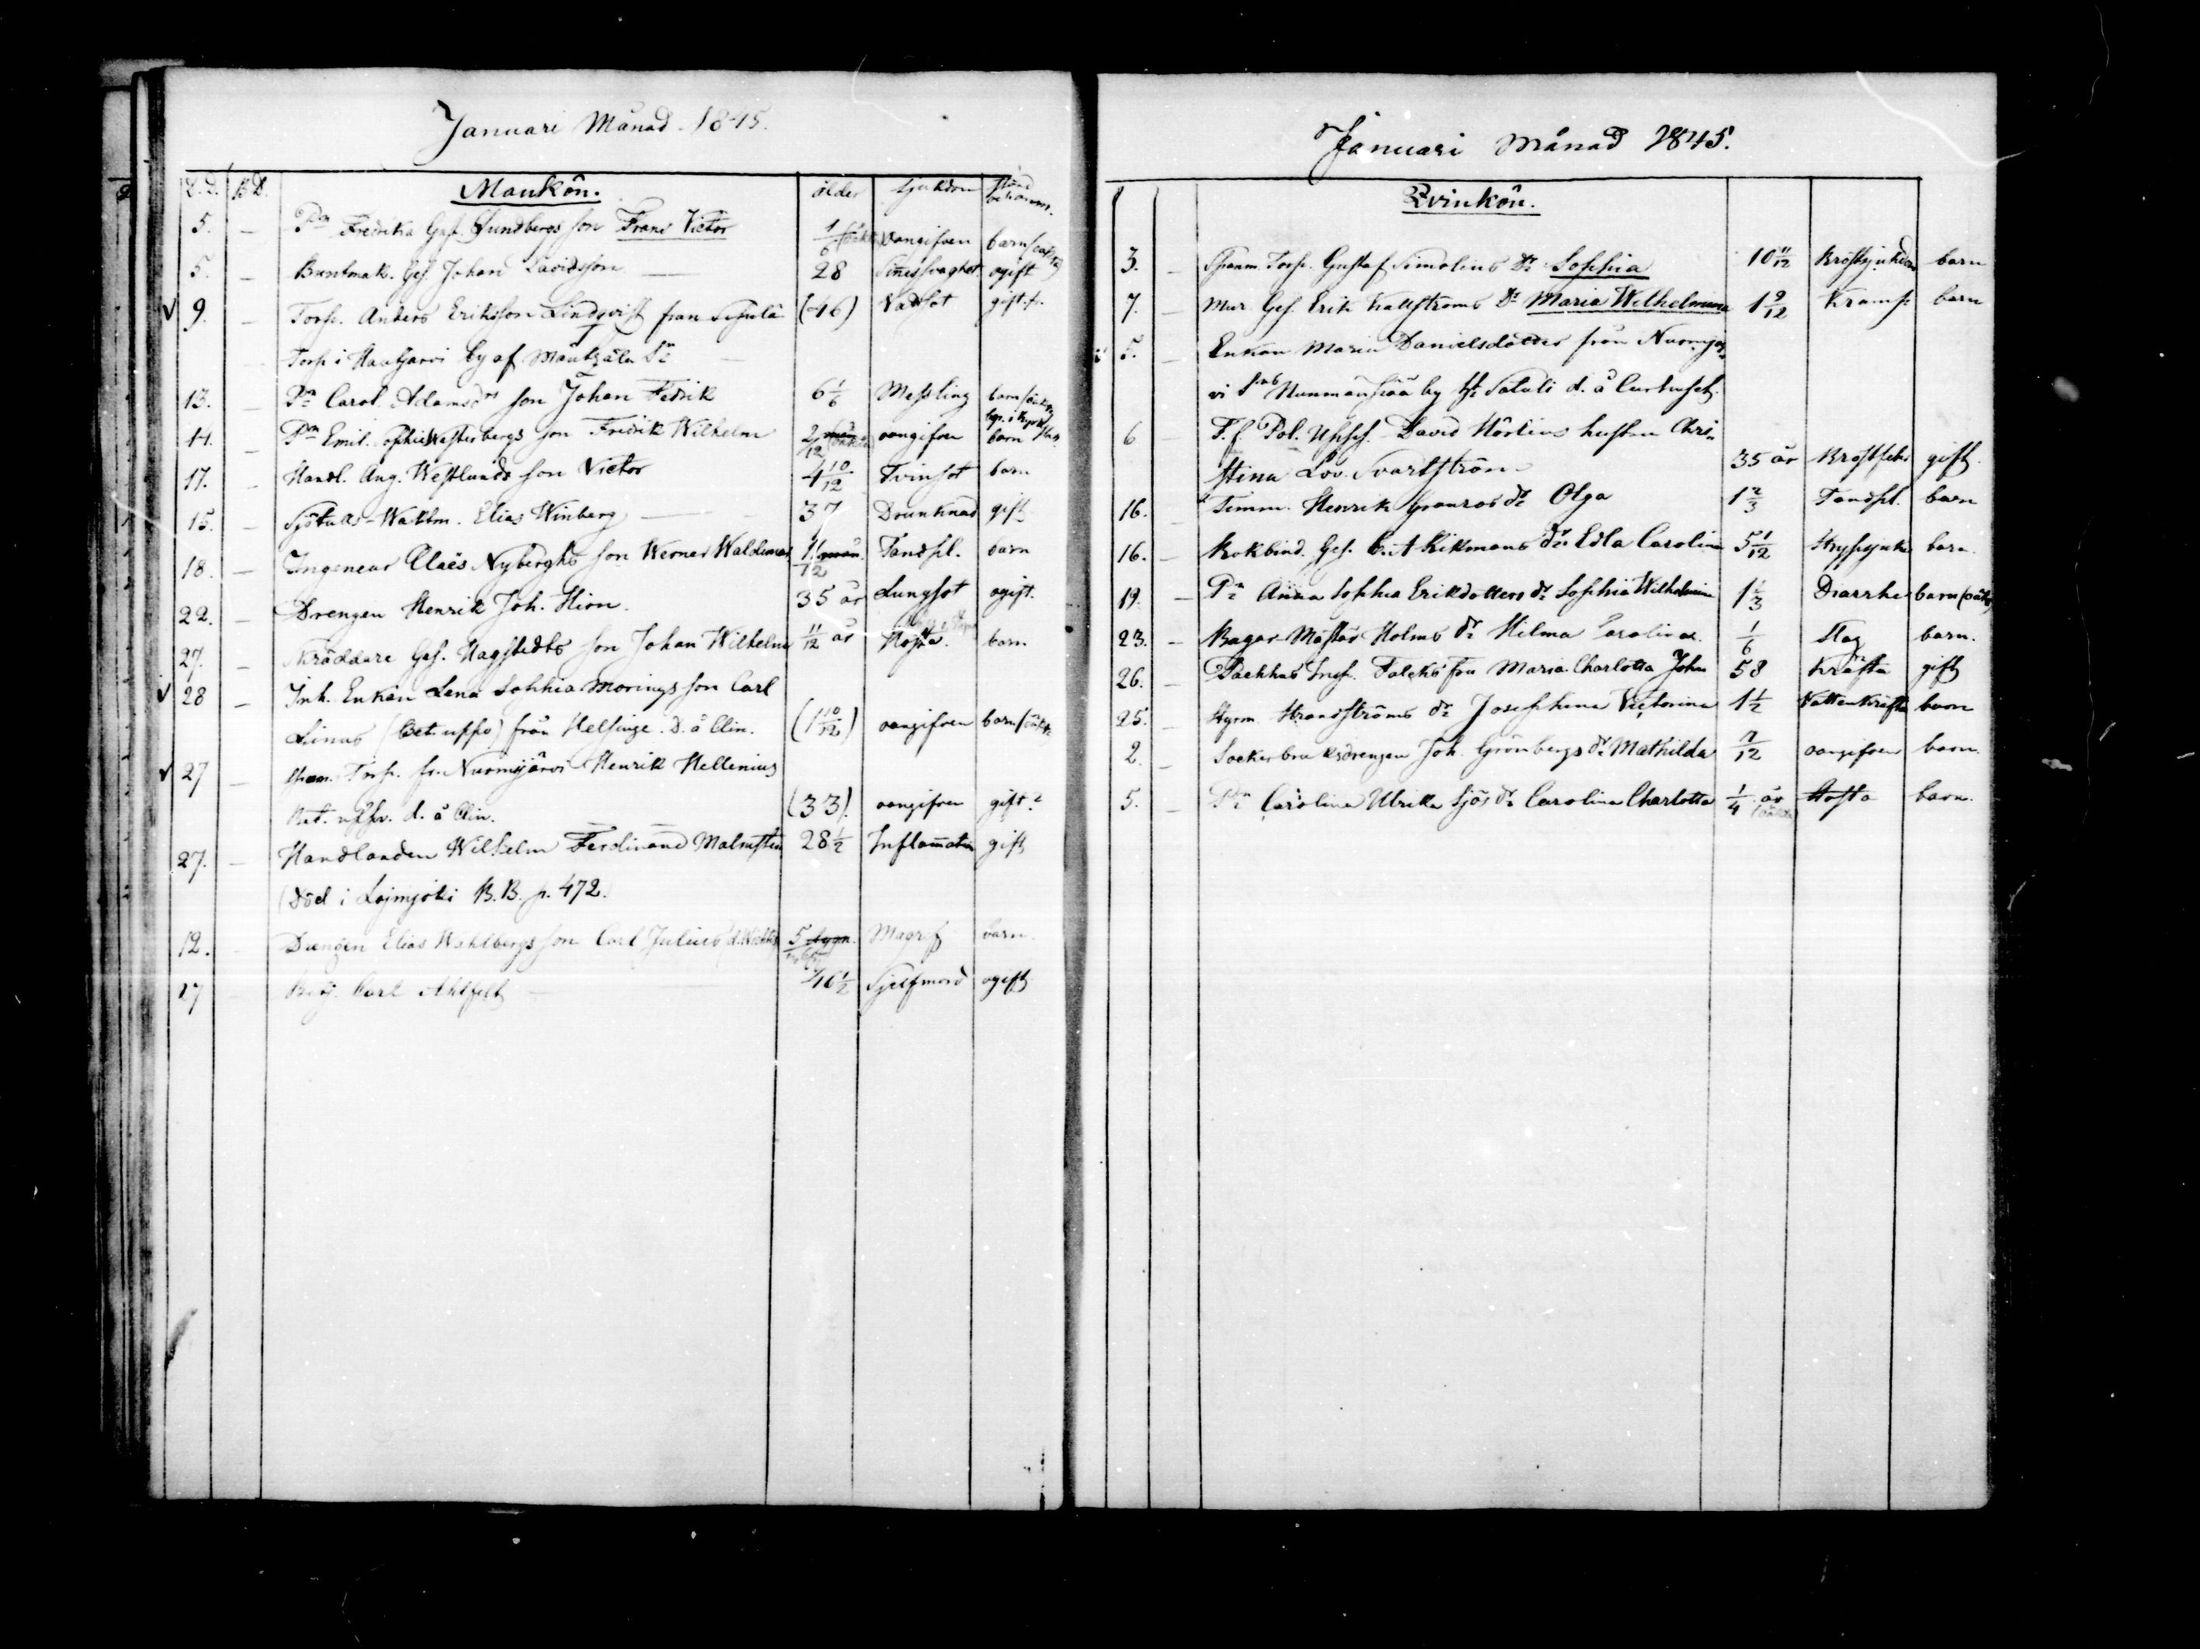 Januari Månad 1845.
D. D. B. D. Mankön. ålder sjukdom
5. – Pn Fredrika Gust. Sundbergs son Frans Victor 1/6 oangifven barn
5. – Buntmak. Ges. Johan Davidsson 28 Sinnessvaghet ogift
√ 9. – Torp. Anders Eriksson Lindqvist från
(46) Vattsot gift
Torp i Hautjärvi by af Mäntzälä Sn
13. Pn Carol. Adamsdrs son Johan Fedrik 6 1/6 Messling barn
14. – Pgn Emil. Sophia Westerbergs son Fredrik Wilhelm 2/12 oangifven barn
17. – Handl. Aug. Westlunds son Victor 4 10/12 Tvinsot barn
15. – Sjötulls-Waktm. Elias Winberg 37 Drunknad gift
18. – Ingeneur Claës Nyberghs son Werner Waldemar 11/12 Tandspr. barn
22. – Drengen Henrik Joh. Hion. 35 år Lungsot ogift.
27. – Skräddare Ges. Hagstedts son Johan Wilhelm 11/12 år Hosta. barn
√ 28 – Inh. Enkan Lena Sophia Morings son Carl
Linus (Bet. uppv.) från Helsinge. D. å Clin. (1 10/12) oangifven barn
√ 27 – Torp. fr. Nurmijärvi Henrik Hellenius
Bet. uppv. d. å Clin. (33). oangifven gift?
27. – Handlanden Wilhelm Ferdinand Malmsten 28 1/2 Inflammation gift
(död i Lojmjoki B.B. p. 472.)
12. Drengen Elias Wahlbergs son Carl Julius 5 Magref barn
27 Carl Ahlfelt 46 1/2 Sjelfmord ogift
Januari Månad 1845.
Qvinkön.
3. – Spanm. Torp. Gustaf Simolins Dr Sophia 10 11/12 Bröstsjukdom barn
7. – Mur. Ges. Erik Kallströms Dr Maria Wilhelmina 1 9/12 Kramp barn
5. – Enkan Maria Danielsdotter från Nurmijär-
vi Sns Nummenpää by d. å Curhuset.
6 T. f. Pol. Uppsy. David Hörlins hustru Chri-
stina Lov. Svartström 35 år Bröstfeber gift.
16. – Timm. Henrik Granros dr Olga 1 2/3 Tandspr. barn
16. – Bokbind. Ges. C. A. Kikmans dr Edla Carolina 5 1/12 Strypsjuka barn.
19. – Pn Anna Sophia Eriksdotters dr Sophia Wilhelmina 1 1/3 Diarrhe barn
23. – Bagar Mästar Holms dr Hilma Carolina. 1/6 Slag barn.
26. – Packhus Insp. Falcks fru Maria Charlotta John 58 Kräfta gift
25. – Styrm. Strandströms dr Josephina Victorina 1 1/2 Vattenkräfta barn
2. – Sockerbruksdrengen Joh. Grönbergs dr Mathilda 7/12 oangifven barn
5. – Pn Carolina Ulrika Sjös dr Carolina Charlotta 1/4 år Hosta barn.